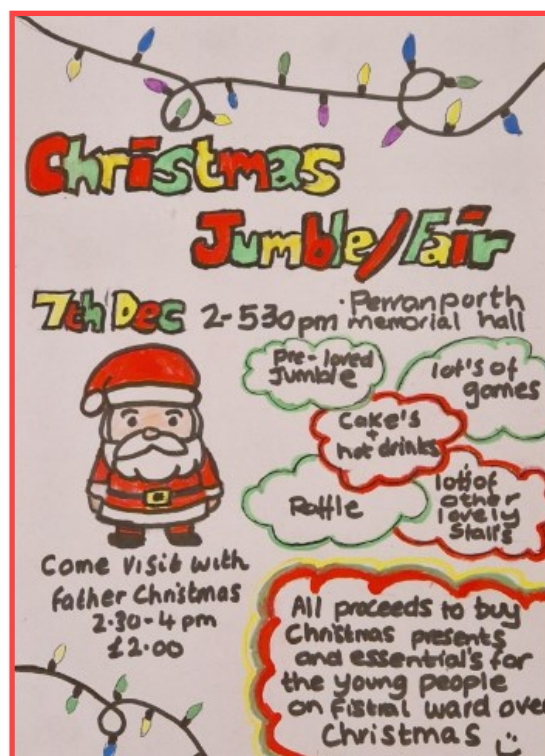 Christmas
Jumble/Fair
7th Dec 2-530pm · Perranporth
memorial hall
Pre-loved
Jumble
lot's of
games
Cake's
+
hot drinks
Raffle
lot's of
other
lovely
Stalls
Come Visit with
Father Christmas
2.30-4 pm
£2.00
All proceeds to buy
Christmas presents
and essential's for
the young people
on Fistral ward over
Christmas